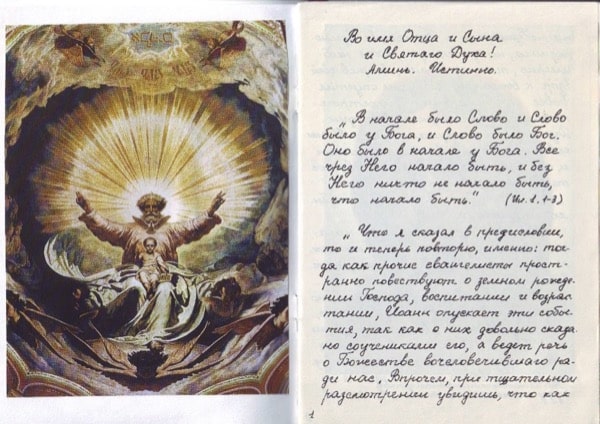 Во имя Отца и Сына
и Святаго Духа!
Аминь. Истинно.
„В начале было Слово и Слово
было у Бога, и Слово было Бог.
Оно было в начале у Бога. Все
чрез Него начало быть, и без
Него ничто не начало быть,
что начало быть." (Ин. 1. 1-3)
„Что я сказал в предисловии,
то и теперь повторю, именно: тог
да как прочие евангелисты прост-
ранно повествуют о земном рожде-
нии Господа, воспитании и возрас
тании, Иоанн опускает эти собы-
тия, так как о них довольно сказа
но соучениками его, а ведет речь
о Божестве вочеловечившагося ра
ди нас. Впрочем, при тщательном
рассмотрении увидишь, что как
1